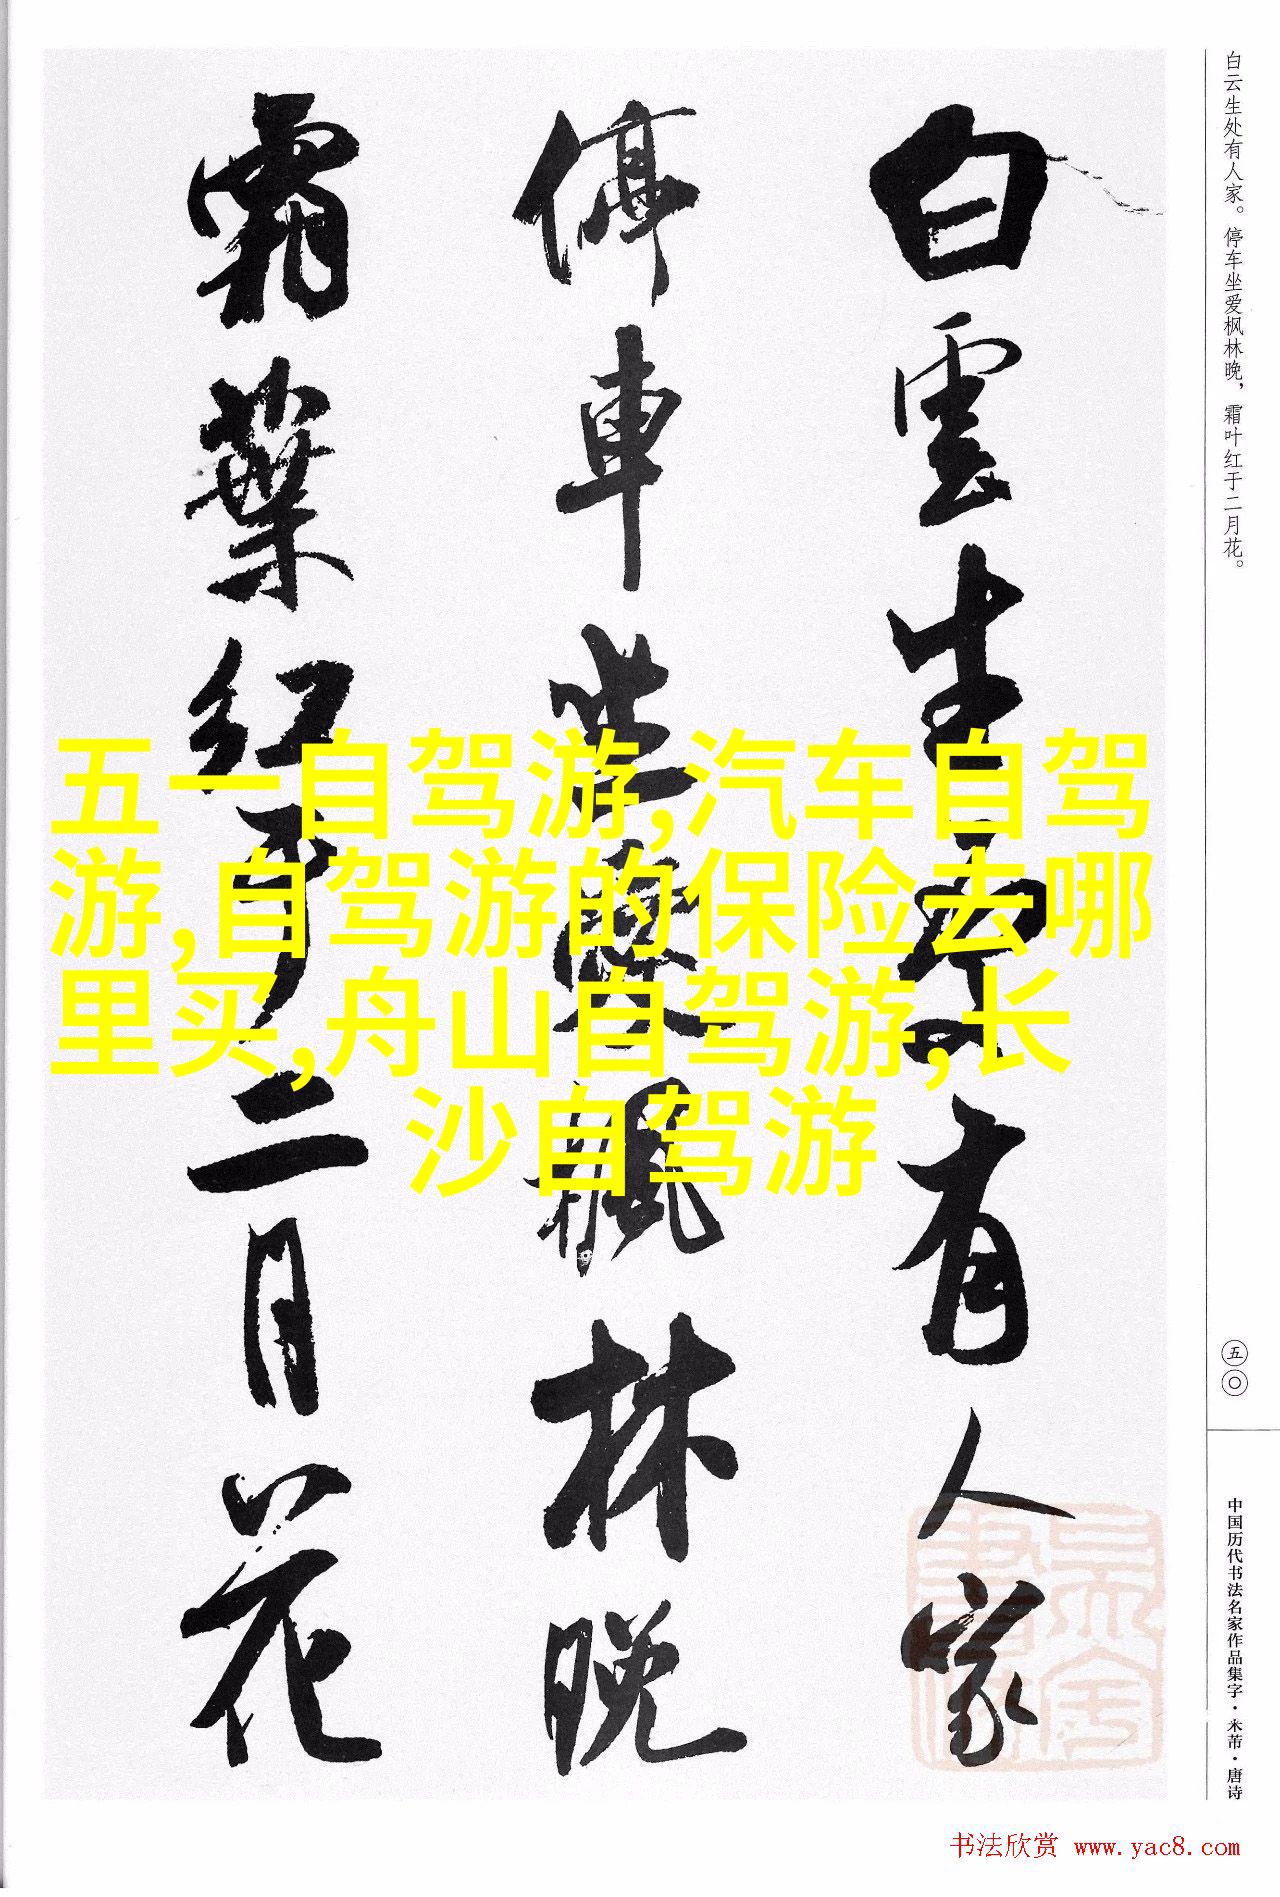 白云生处有人家。停车坐爱枫林晚，霜叶红于二月花。
白雲生處有人家
停車坐愛楓林晚
霜葉紅於二月花
五一自驾游,汽车自驾
游,自驾游的保险去哪
里买,舟山自驾游,长
沙自驾游
五〇
中国历代书法名家作品集字·米芾·唐诗
书法欣赏 www.yac8.com